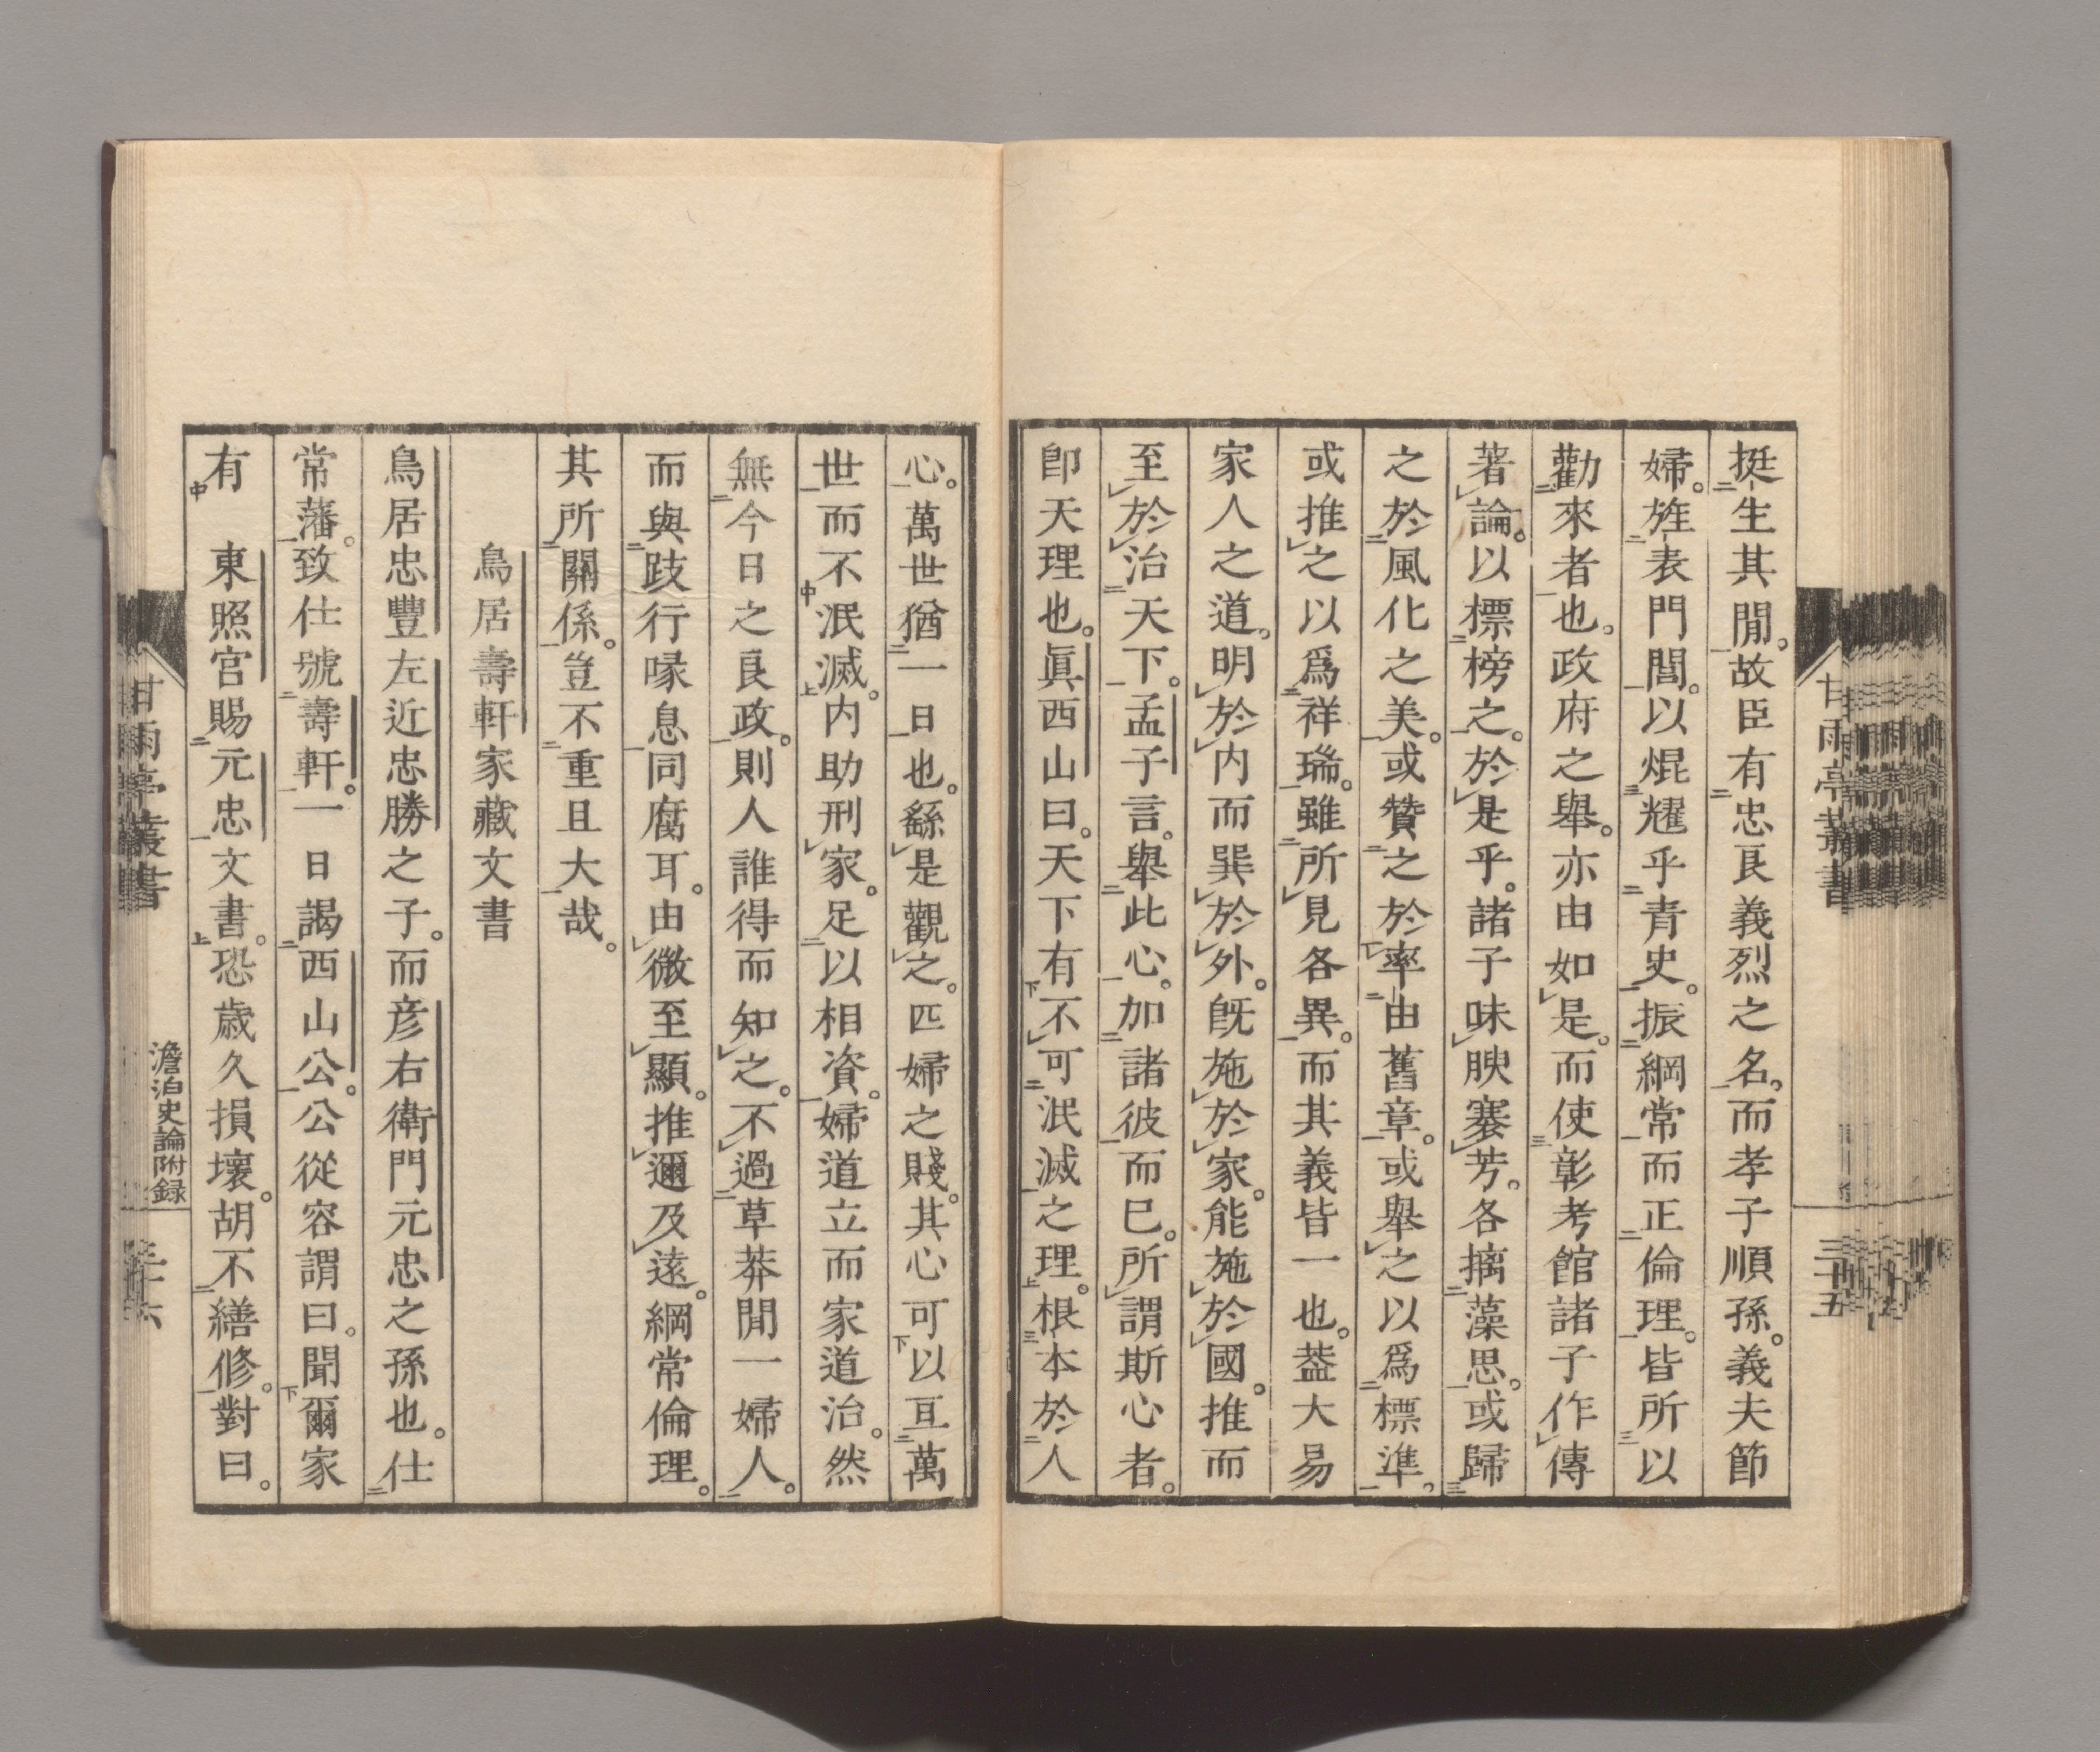 挺生其閒。故臣有忠良義烈之名。而孝子順孫。義夫節
婦。旌表門閭。以焜耀乎青史。振綱常而正倫理。皆所以
勸來者也。政府之舉。亦由如是。而使彰考館諸子作傳
著論。以標榜之。於是乎。諸子味腴搴芳。各摛藻思。或歸
之於風化之美。或贊之於率由舊章。或舉之以爲標準。
或推之以爲祥瑞。雖所見各異。而其義皆一也。葢大易
家人之道。明於内而巽於外。旣施於家。能施於國。推而
至於治天下。孟子言。舉此心。加諸彼而已。所謂斯心者。
卽天理也。眞西山曰。天下有不可泯滅之理。根本於人
心。萬世猶一日也。繇是觀之。匹婦之賤。其心可以亙萬
世而不泯滅。内助刑家。足以相資。婦道立而家道治。然
無今日之良政。則人誰得而知之。不過草莽閒一婦人。
而與跂行喙息同腐耳。由微至顯。推邇及遠。綱常倫理。
其所關係。豈不重且大哉。
鳥居壽軒家藏文書
鳥居忠豐左近忠勝之子。而彦右衛門元忠之孫也。仕
常藩。致仕號壽軒。一日謁西山公。公從容謂曰。聞爾家
有 東照宮賜元忠文書。恐歲久損壞。胡不繕修。對曰。
甘雨亭叢書
三十五
甘雨亭叢書
澹泊史論附録
三十六